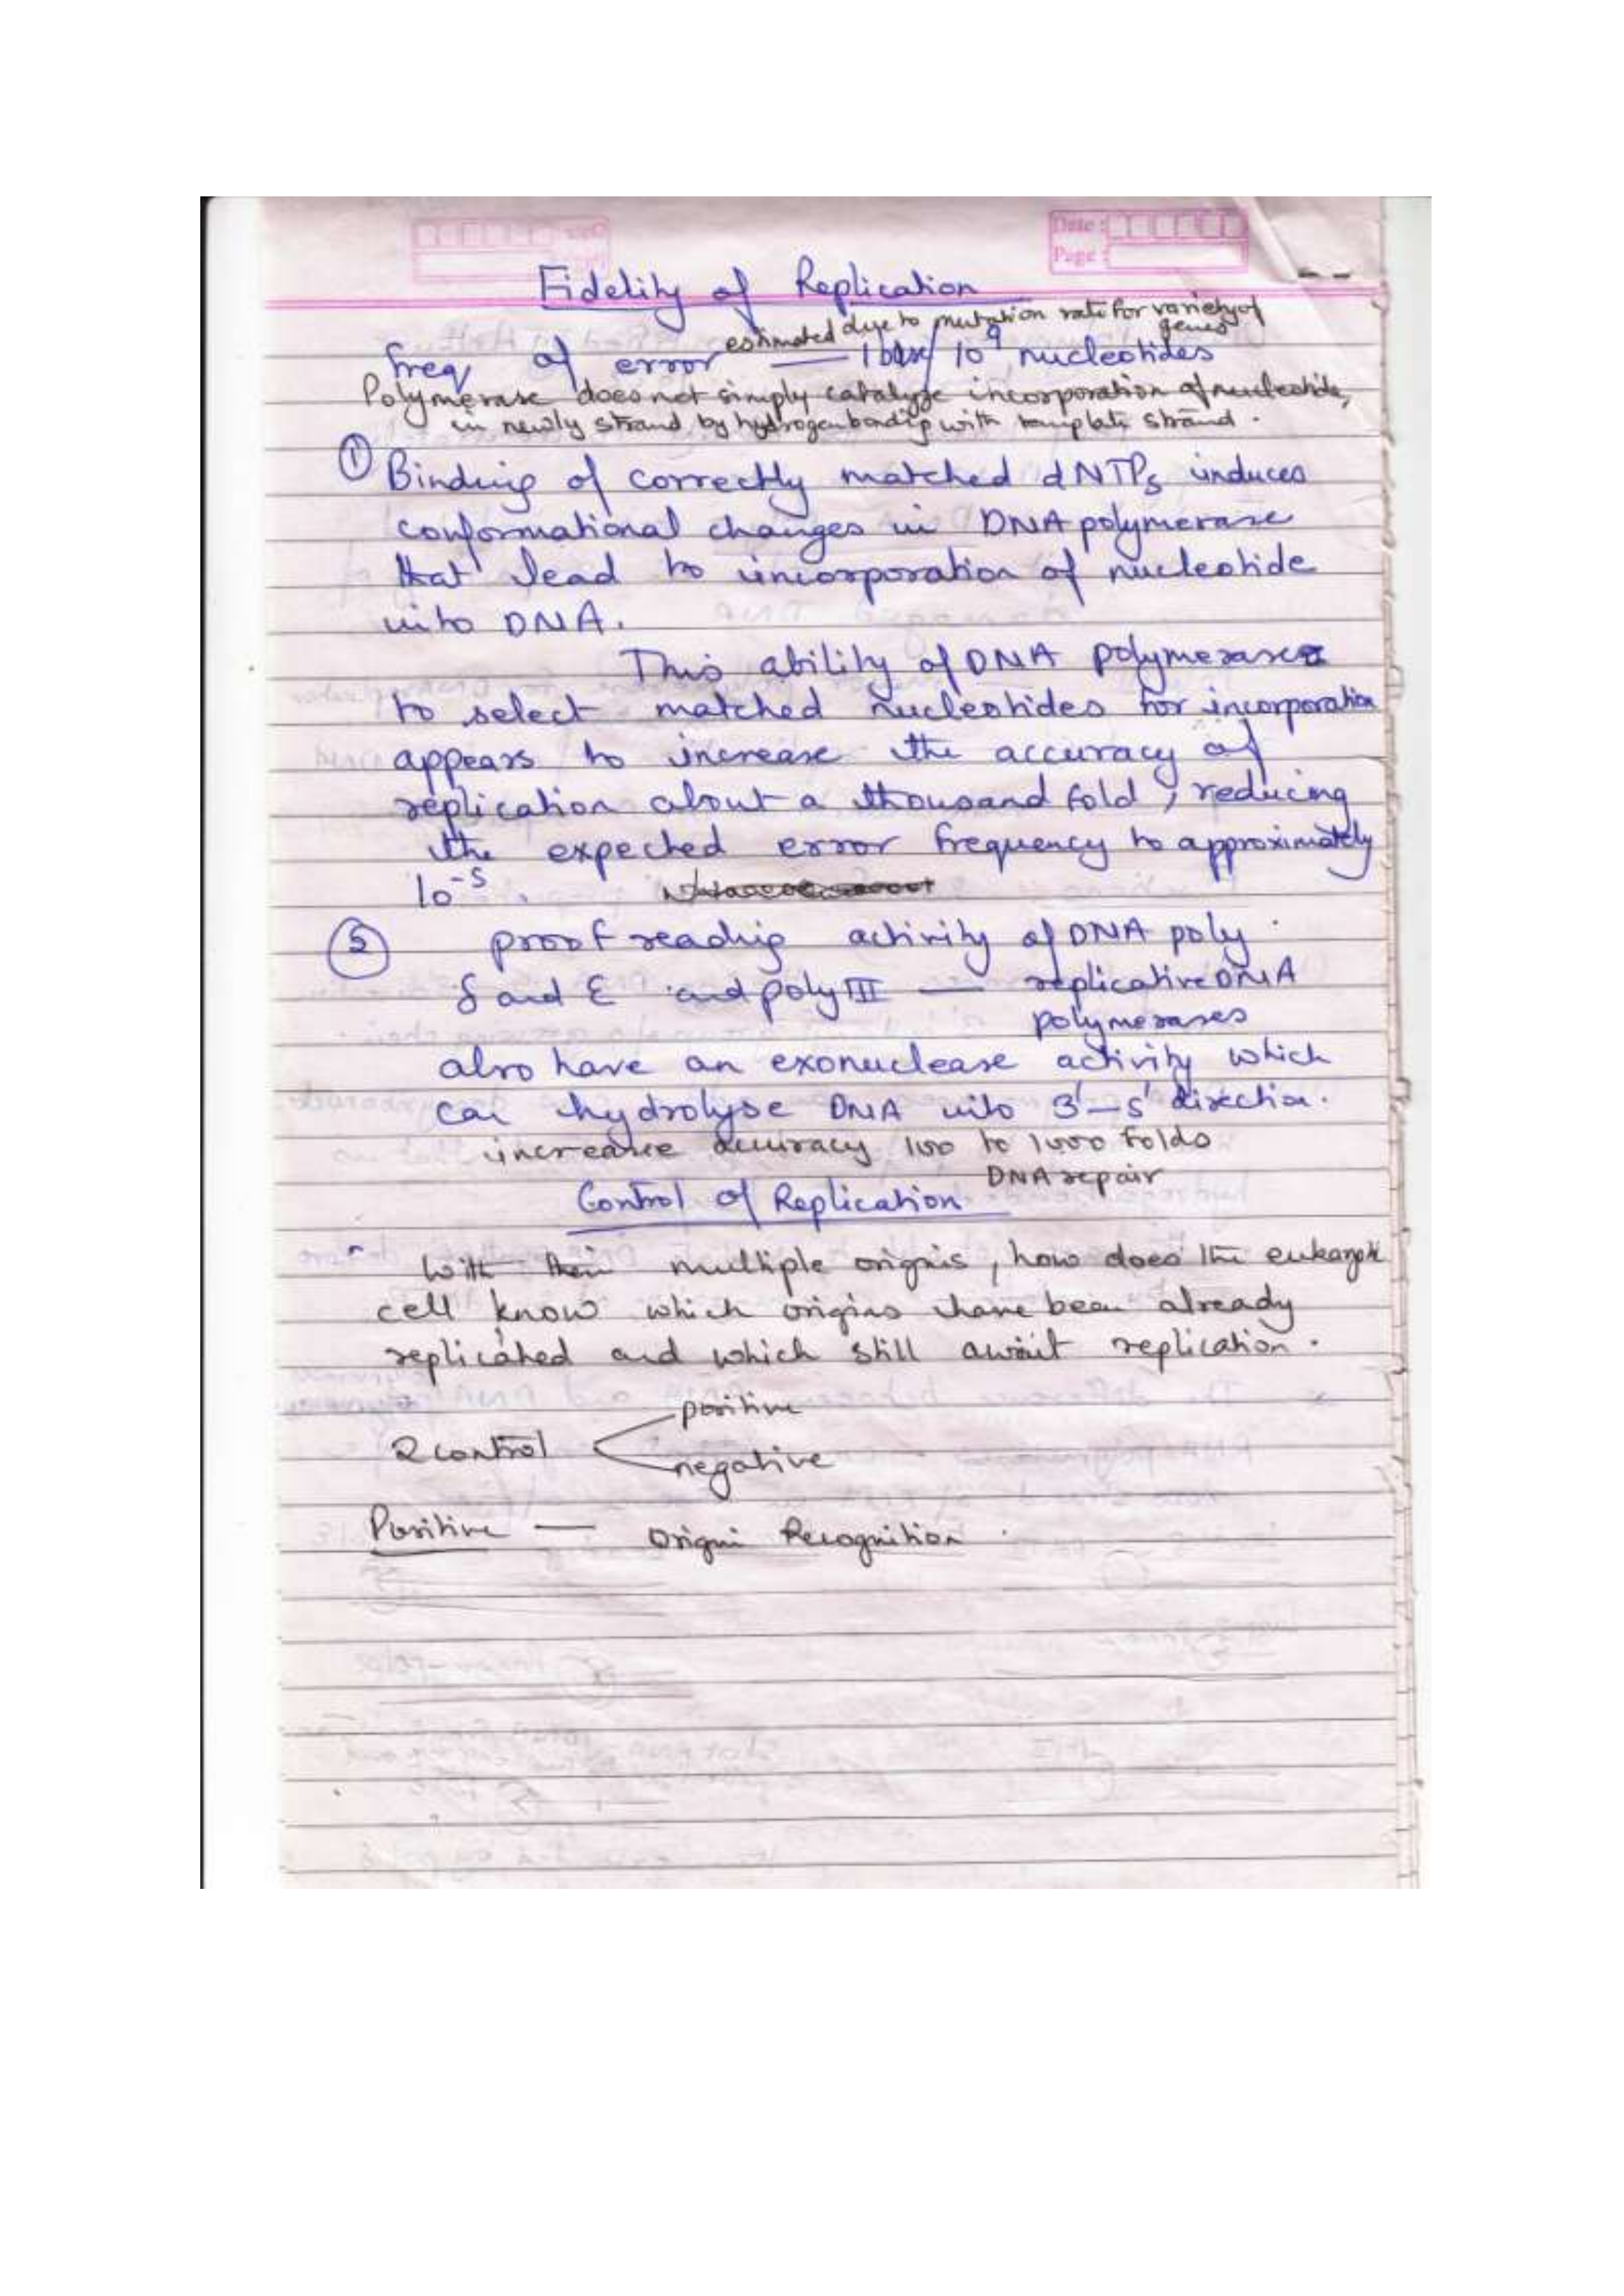 Date :
Page :
Fidelity of Replication
estimated due to mutation rate for variety of genes
freq of error — 1 base/ 10⁹ nucleotides
Polymerase does not simply catalyze incorporation of nucleotide,
in newly strand by hydrogen bondig with template strand.
① Binding of correctly matched dNTPs induces
conformational changes in DNA polymerase
that lead to incorporation of nucleotide
into DNA.
This ability of DNA polymerase
to select matched nucleotides for incorporation
appears to increase the accuracy of
replication about a thousand fold, reducing
the expected error frequency to approximately
10⁻⁵.
② proof reading activity of DNA poly
δ and ε and poly III — replicative DNA
polymerases
also have an exonuclease activity which
can hydrolyse DNA into 3'–5' direction.
increase accuracy 100 to 1000 folds
DNA repair
Control of Replication
With their multiple origins, how does the eukaryotic
cell know which origins have been already
replicated and which still await replication.
positive
2 control
negative
Positive — Origin Recognition